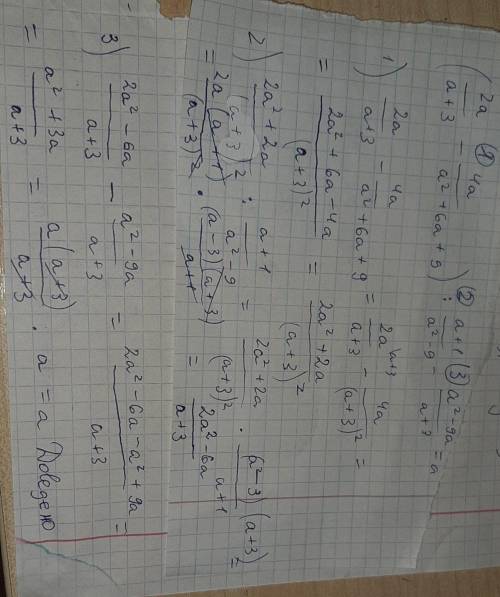 (2a/(a+3) ① − 4a/(a²+6a+9)) ② : (a+1)/(a²−9) ③ − (a²−9a)/(a+3) = a
1) 2a/(a+3) − 4a/(a²+6a+9) = 2a\a+3/(a+3) − 4a/(a+3)² =
= (2a²+6a−4a)/(a+3)² = (2a²+2a)/(a+3)²
2) (2a²+2a)/(a+3)² : (a+1)/(a²−9) = (2a²+2a)/(a+3)² · (a²−3)(a+3)/(a+1) =
= 2a(a+1)/(a+3)² · (a−3)(a+3)/(a+1) = (2a²−6a)/(a+3)
3) (2a²−6a)/(a+3) − (a²−9a)/(a+3) = (2a²−6a−a²+9a)/(a+3) =
= (a²+3a)/(a+3) = a(a+3)/(a+3) . a = a Доведено